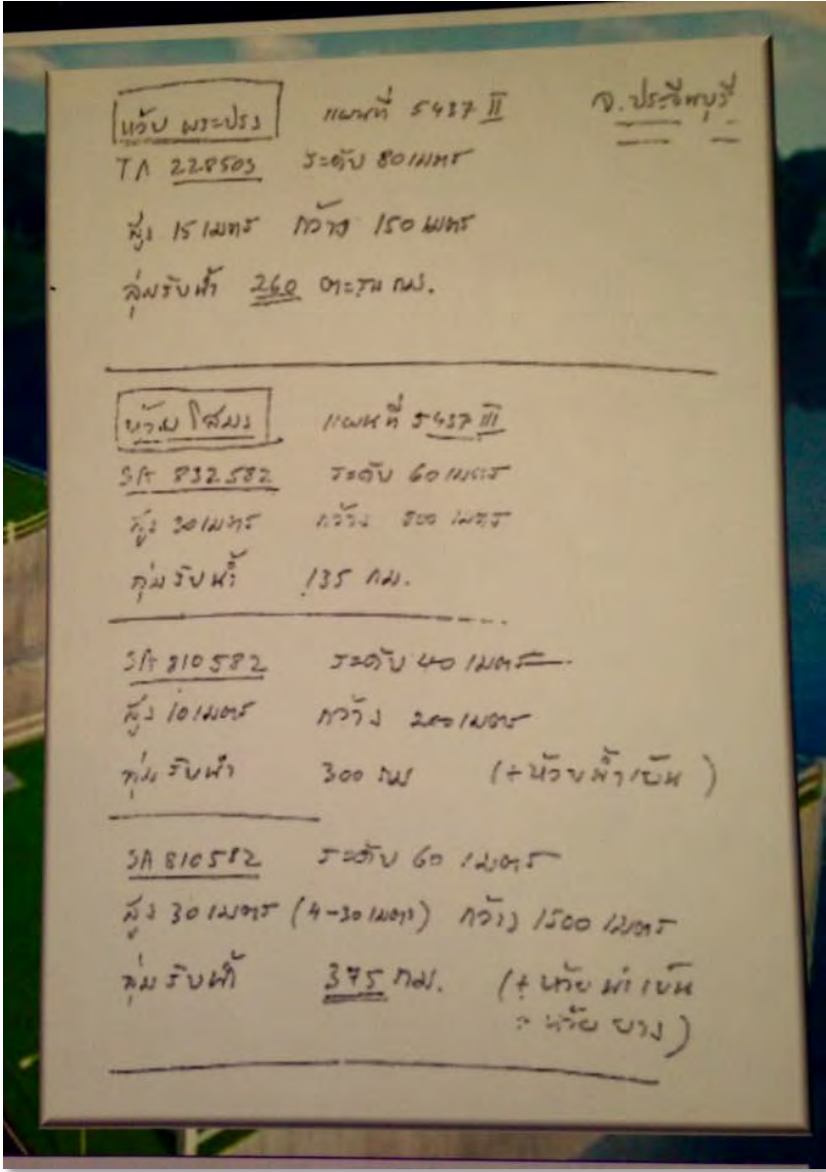 แควพระปรง แผนที่ 5437 II จ.ปราจีนบุรี
TA 228503 ระดับ 80 เมตร
สูง 15 เมตร กว้าง 150 เมตร
ลุ่มรับน้ำ 260 ตะรน กม.
ห้วยโสมง แผนที่ 5437 III
SA 832582 ระดับ 60 เมตร
สูง 30 เมตร กว้าง 800 เมตร
ลุ่มรับน้ำ 135 กม.
SA 810582 ระดับ 40 เมตร
สูง 10 เมตร กว้าง 200 เมตร
ลุ่มรับน้ำ 300 กม (+ห้วยน้ำเย็น)
SA 810582 ระดับ 60 เมตร
สูง 30 เมตร (4-30 เมตร) กว้าง 1500 เมตร
ลุ่มรับน้ำ 375 กม. (+ ห้วยน้ำเย็น
+ ห้วยยาง)